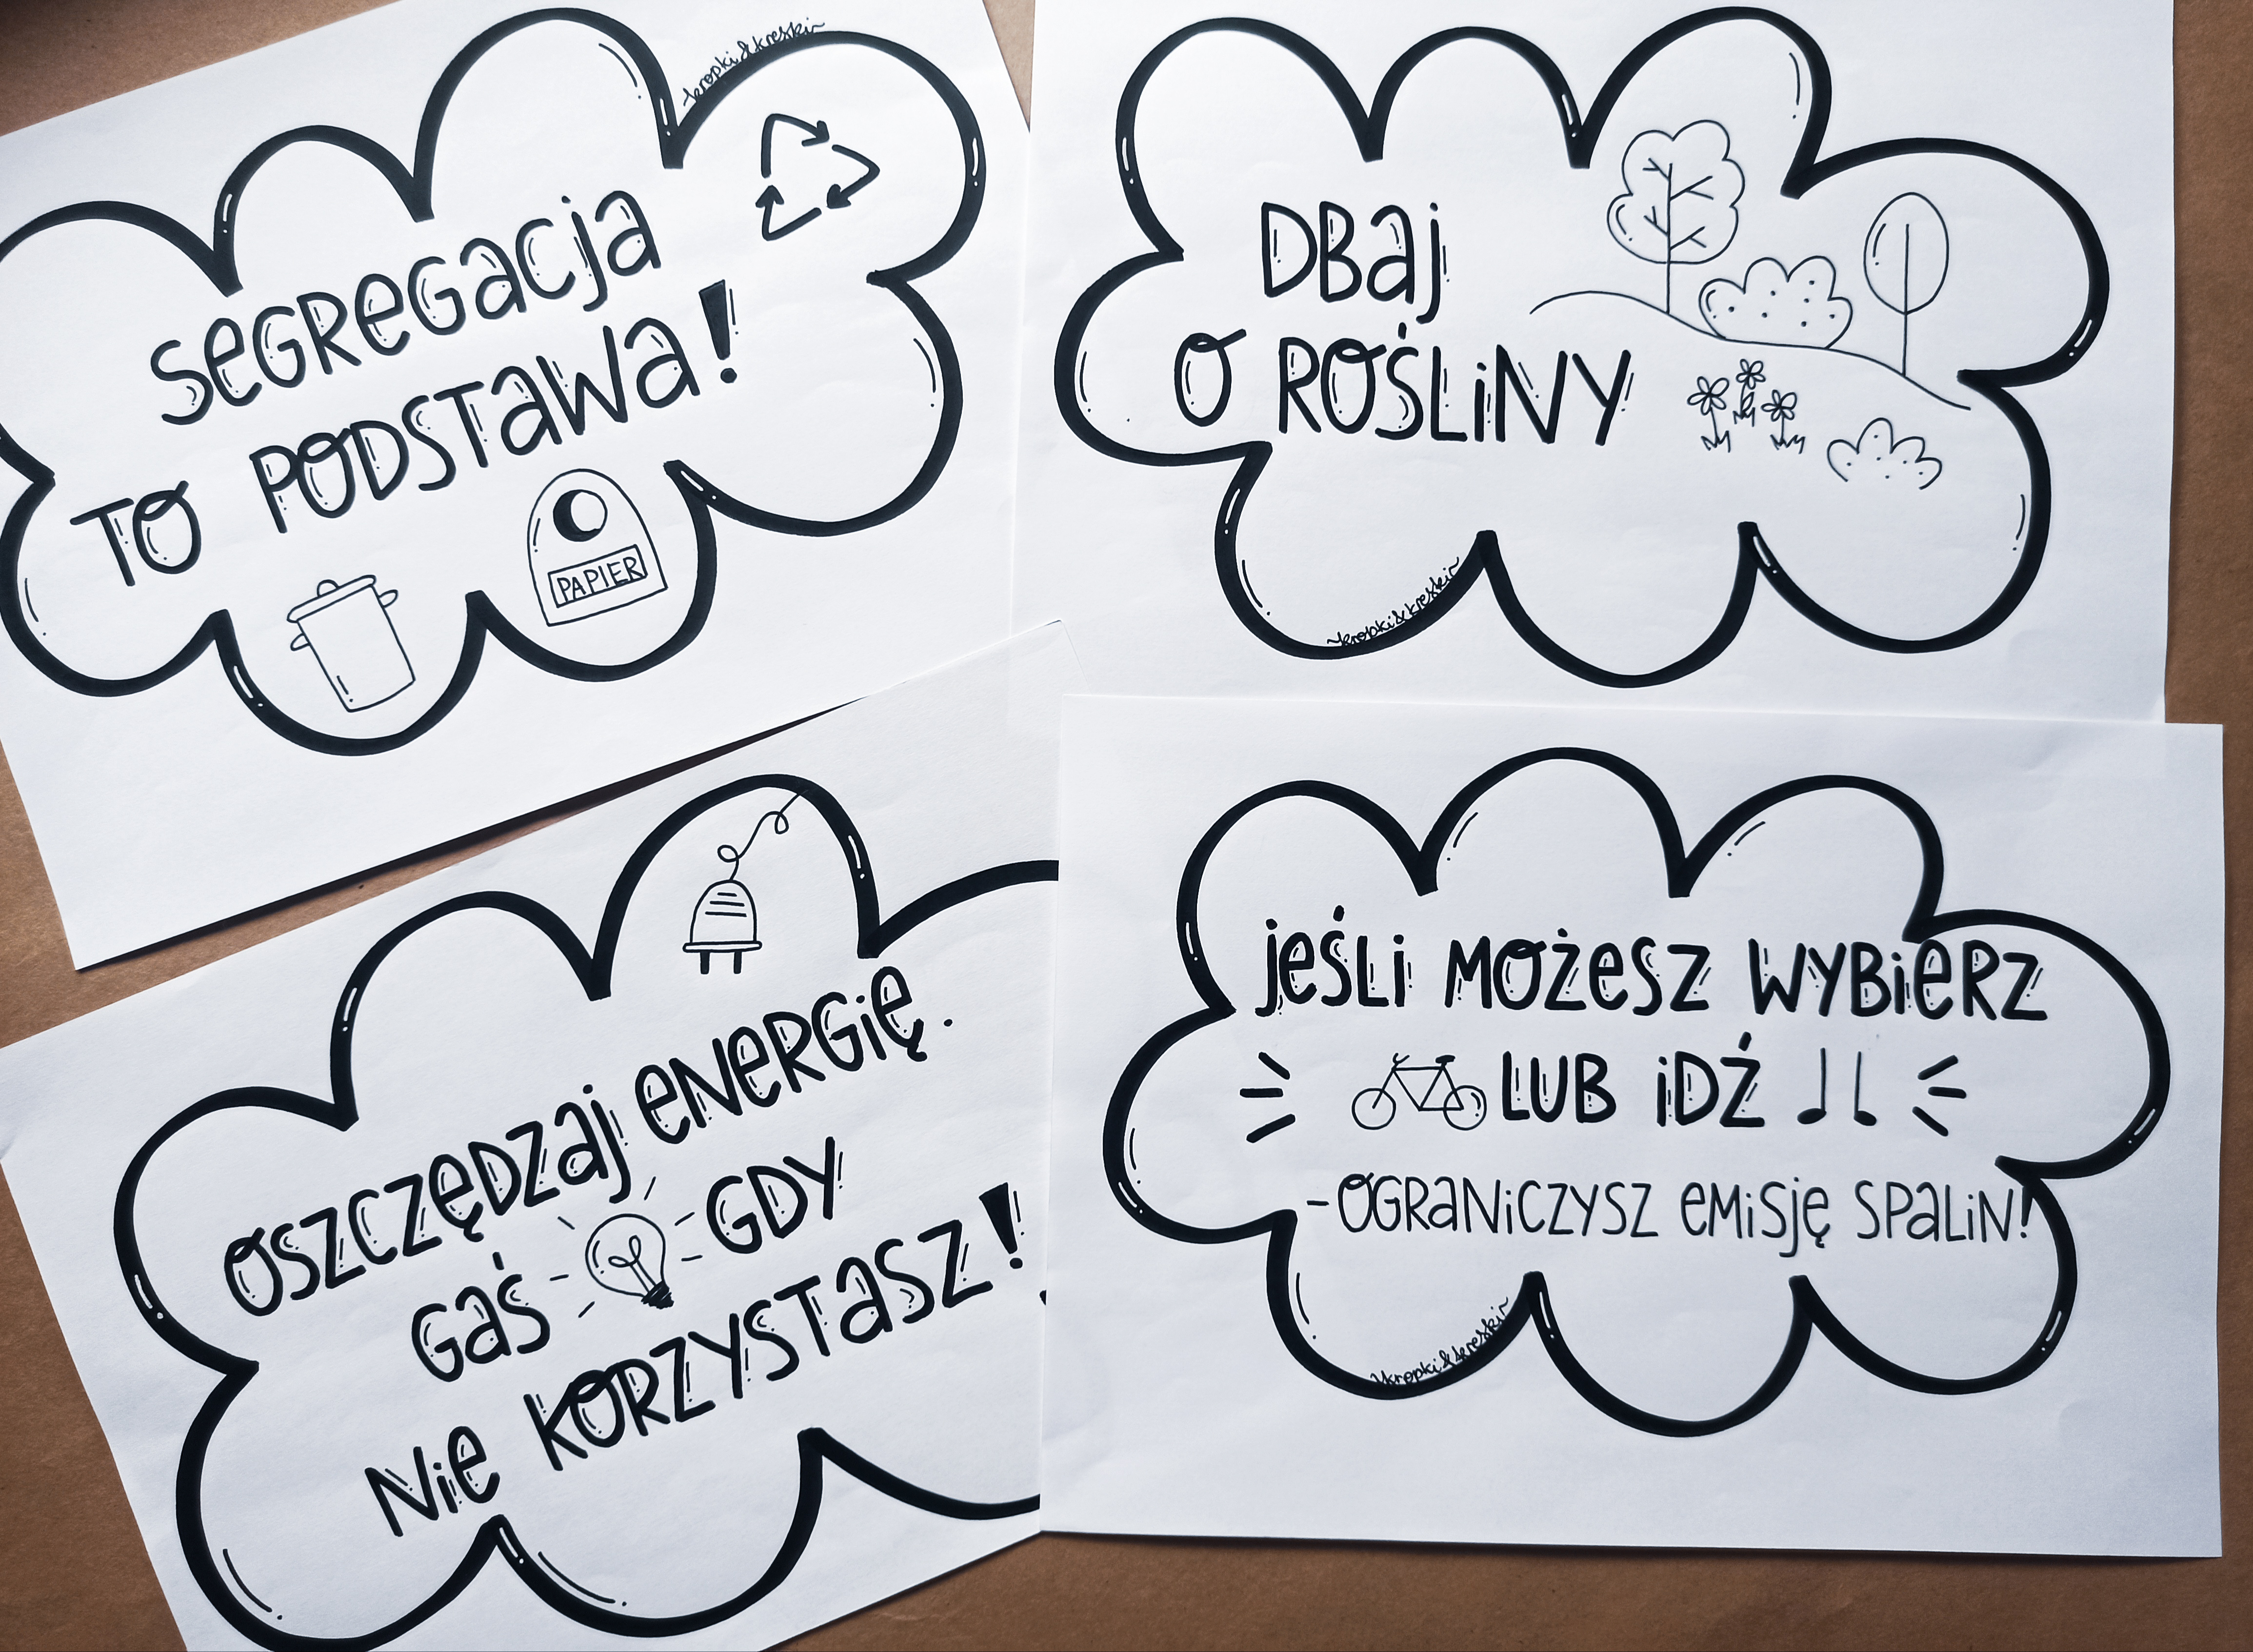 kropki&kreski
SEGREGACJA
TO PODSTAWA!
PAPIER
DBAJ
O ROŚLINY
kropki&kreski
OSZCZĘDZAJ ENERGIĘ.
GAŚ GDY
NIE KORZYSTASZ!
JEŚLI MOŻESZ WYBIERZ
LUB IDŹ
-OGRANICZYSZ EMISJĘ SPALIN!
kropki&kreski